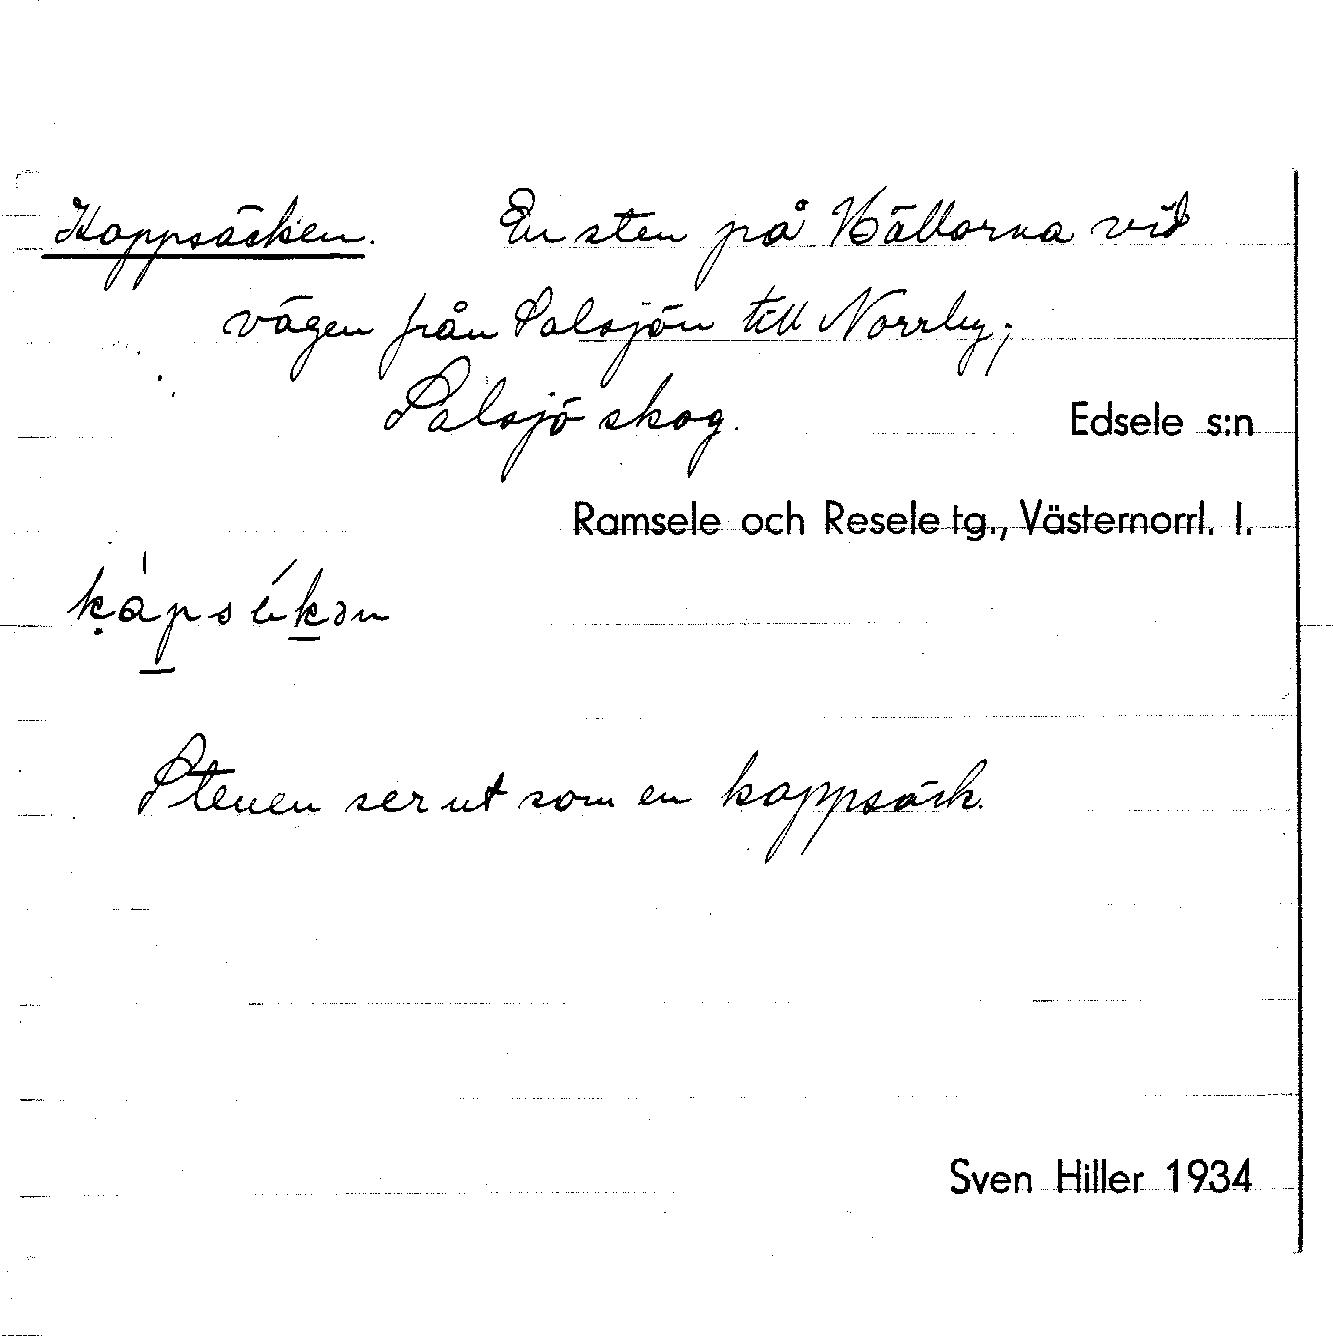 Kappsäcken. En sten på Hällorna vid
vägen från Salsjön till Norrby;
Salsjö skog.
Edsele s:n
Ramsele och Resele tg., Västernorrl. l.
Stenen ser ut som en kappsäck.
Sven Hiller 1934